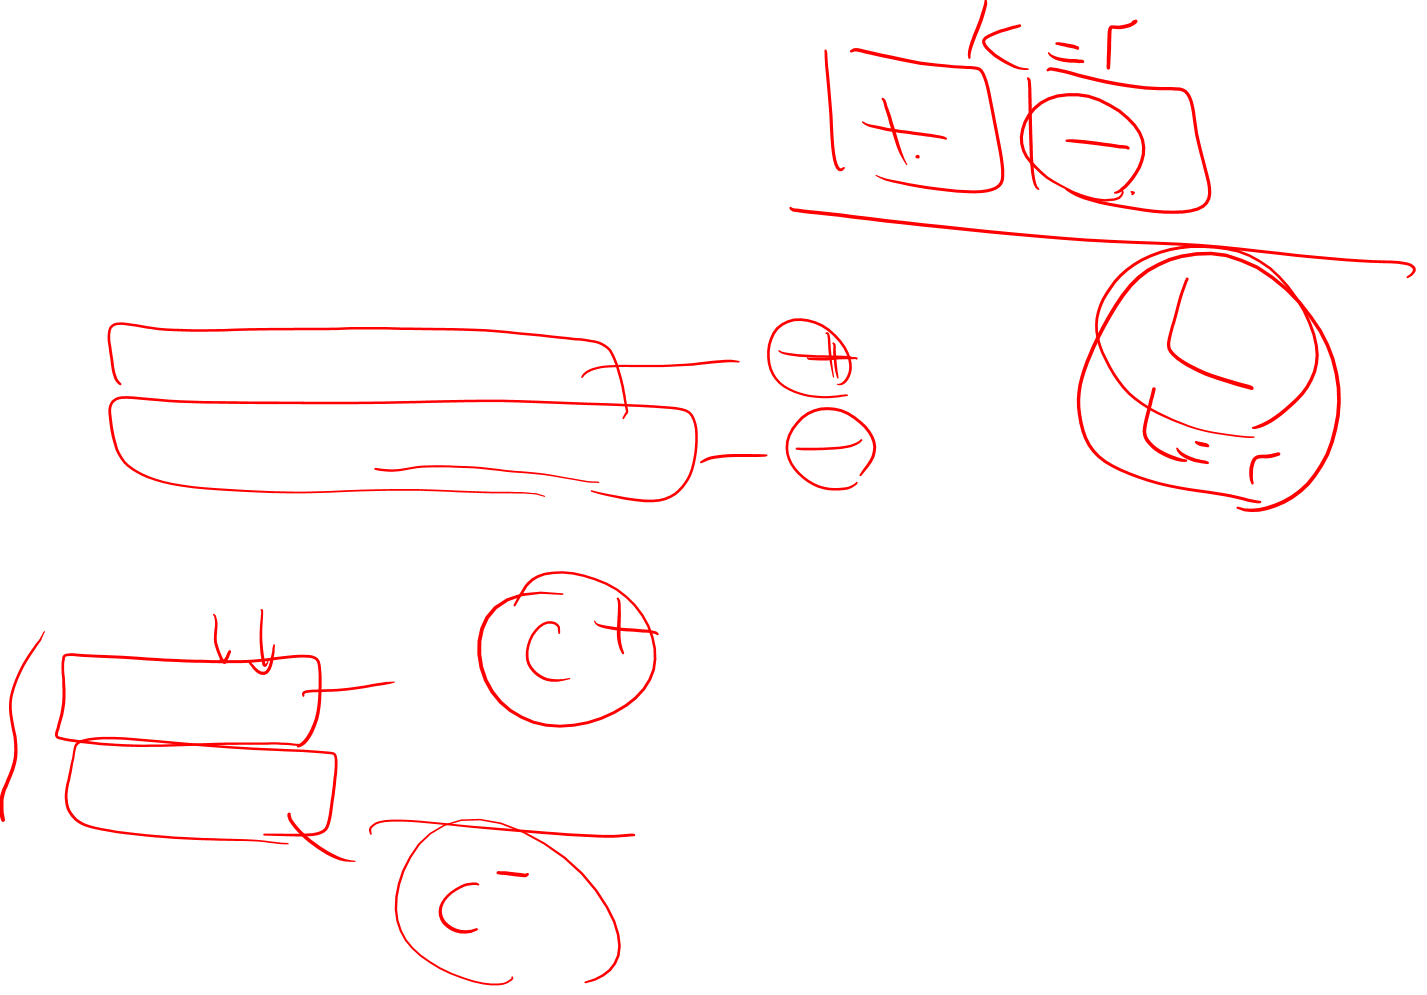 K = r
+ -
L
L = r
+
-
C +
C -